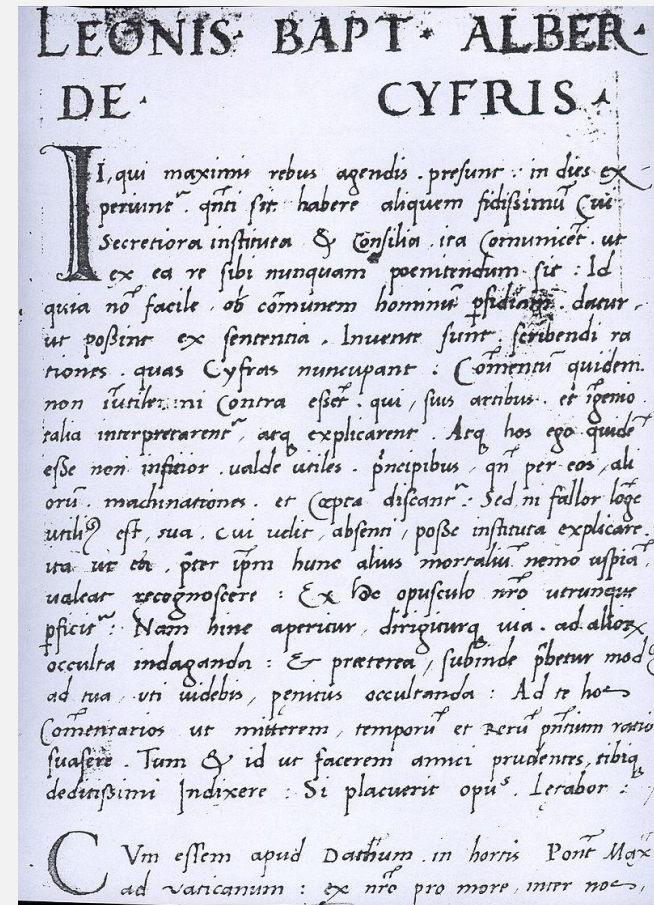 LEONIS· BAPT· ALBER·
DE· CYFRIS·
II, qui maximis rebus agendis . presunt : in dies ex
periunt᷑ . qñti sit habere aliquem fidißimũ Cui
Secretiora instituta & Consilia . ita Comunicet . ut
ex ea re sibi nunquam poenitendum sit : Id
quia nõ facile . ob cõmunem hominũ ꝑfidiam . datur .
ut poßint ex sententia . Inuente sunt . scribendi ra
tiones . quas Cyfras nuncupant : Cõmentũ quidem
non iũtile . ni Contra esset . qui , suis artibus . et ĩgenio
talia interpretarent᷑ , atq explicarent . Atq hos ego quidẽ
eße non infitior . ualde utiles . pñcipibus , qñ per eos , ali
orũ . machinationes . et Cœpta discant᷑ : Sed ni fallor lõge
utiliꝯ est , sua . cui uelit , absenti , poße instituta explicare .
ita ut ea , p̃ter ip̃m hunc alius mortaliũ nemo uspiã
ualeat recognoscere : Ex hoc opusculo nr̃o utrunque
ꝑficit᷑ : Nam hinc aperitur , dirigiturq uia . ad aliorꝝ
occulta indaganda : & præterea , subinde p̃betur modꝯ
ad tua , uti uidebis , penitus occultanda : Ad te hos
Cõmentarios ut mitterem , temporũ et rerũ pñtium ratio
suasere . Tum & id ut facerem amici prudentes , tibiq
deditißimi Indixere : Si placuerit opuˢ . Letabor :
CVm essem apud Dathum . in hortis Pont̃ Max
ad vaticanum : ex nr̃o pro more , inter nos ,